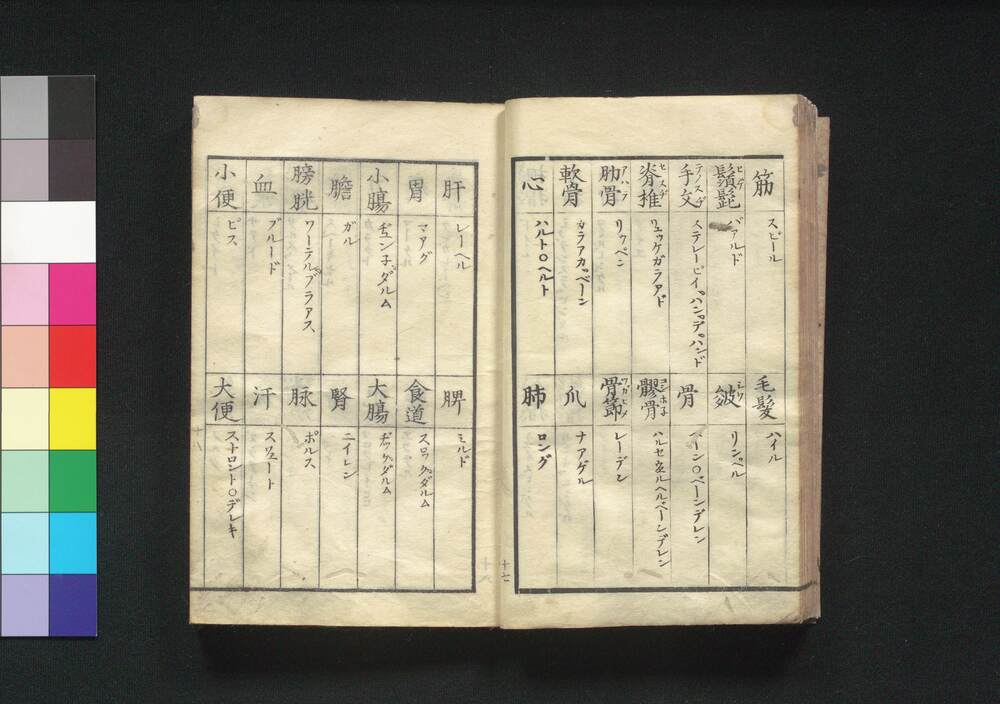 筋 スピール
鬚髭 ヒゲ バアルド
手文 テノスヂ ステレーピイ、ハン、デ、ハンド
脊椎 セスヂ リュッケガラアド
肋骨 アハラ リッペン
軟骨 カラアカ、ベーン
心 ハルト〇ヘルト
毛髪 ハイル
皺 シワ リンペル
骨 ベーン〇ベーンデレン
髎骨 ハルセネルヘルベーンデレン
骨節 レーデン
爪 ナアゲル
肺 ロング
十七
肝 レーヘル
胃 マアグ
小腸 ヂュン子、ダルム
膽 ガル
膀胱 ワーテルブラアス
血 ブルード
小便 ピス
脾 ミルド
食道 スロック、ダルム
大腸 ヂッケ、ダルム
腎 ニイレン
脉 ポルス
汗 スウェート
大便 ストロント〇デレキ
十八